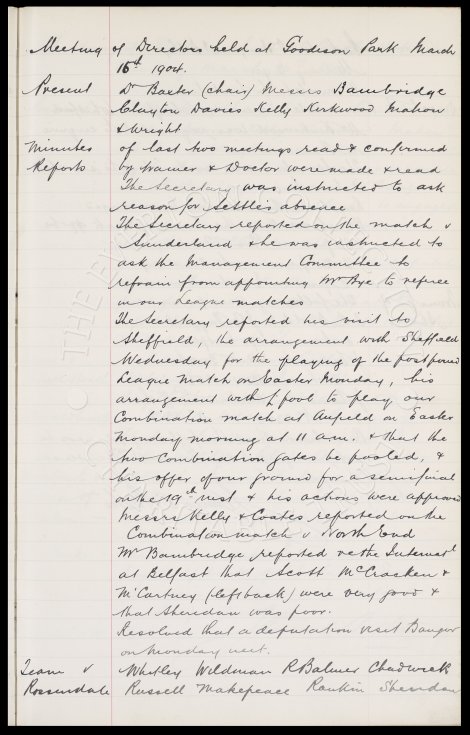 Meeting of Directors held at Goodison Park March
16th 1904.
Present Dr Baxter (chair) Messrs Bainbridge
Clayton Davies Kelly Kirkwood Mahon
& Wright
Minutes of last two meetings read & confirmed
Reports by trainer & Doctor were made & read
The Secretary was instructed to ask
reason for Settle's absence
The Secretary reported on the match v
Sunderland & he was instructed to
ask the Management Committee to
refrain from appointing Mr Bye to referee
in our League matches
The Secretary reported his visit to
Sheffield, the arrangement with Sheffield
Wednesday for the playing of the postponed
League match on Easter Monday, his
arrangement with L'pool to play our
Combination match at Anfield on Easter
Monday morning at 11 a.m. & that the
two Combination gates be pooled, &
his offer of our ground for a semi final
on the 19th inst & his actions were approved
Messrs Kelly & Coates reported on the
Combination match v North End
Mr Bainbridge reported re the Internatl
at Belfast that Scott McCracken &
McCartney (left back) were very good &
that Sheridan was poor.
Resolved that a deputation visit Bangor
on Monday next.
Team v Whitley Wildman R Balmer Chadwick
Rossendale Russell Makepeace Rankin Sheridan